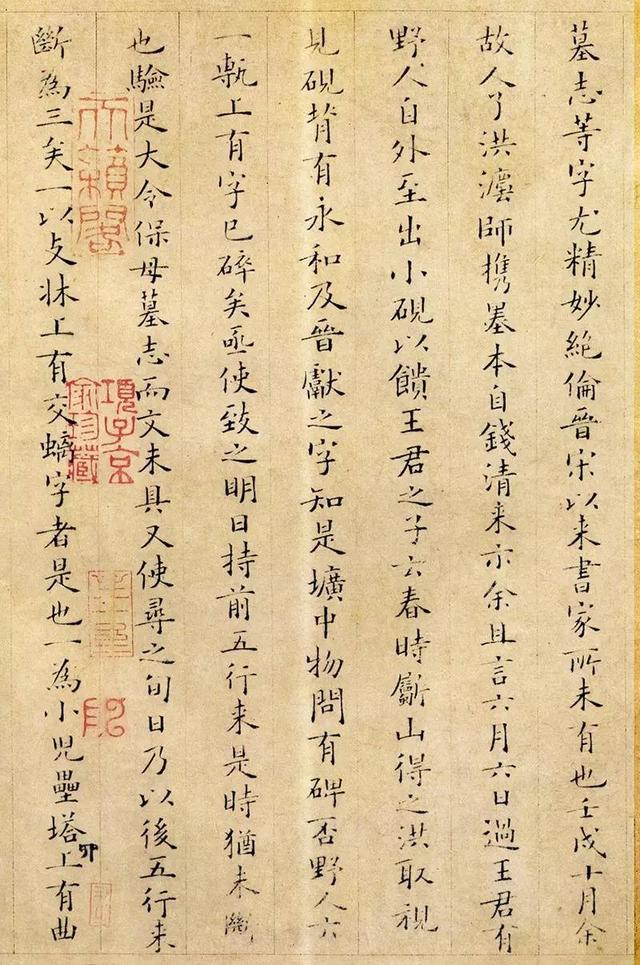 墓志等字尤精妙絶倫晉宋以来書家所未有也壬戌十月余
故人了洪瀍師携墨本自錢清来示余且言六月六日過王君有
野人自外至出小硯以饋王君之子云春時斸山得之洪取視
見硯背有永和及晉獻之字知是壙中物問有碑否野人云
一甎上有字已碎矣亟使致之明日持前五行来是時猶未斷
也驗是大令保母墓志而文未具又使尋之旬日乃以後五行来
斷為三矣一以支牀上有交螭字者是也一為小児壘塔上有曲
卯
天籟閣
項子京家珍藏